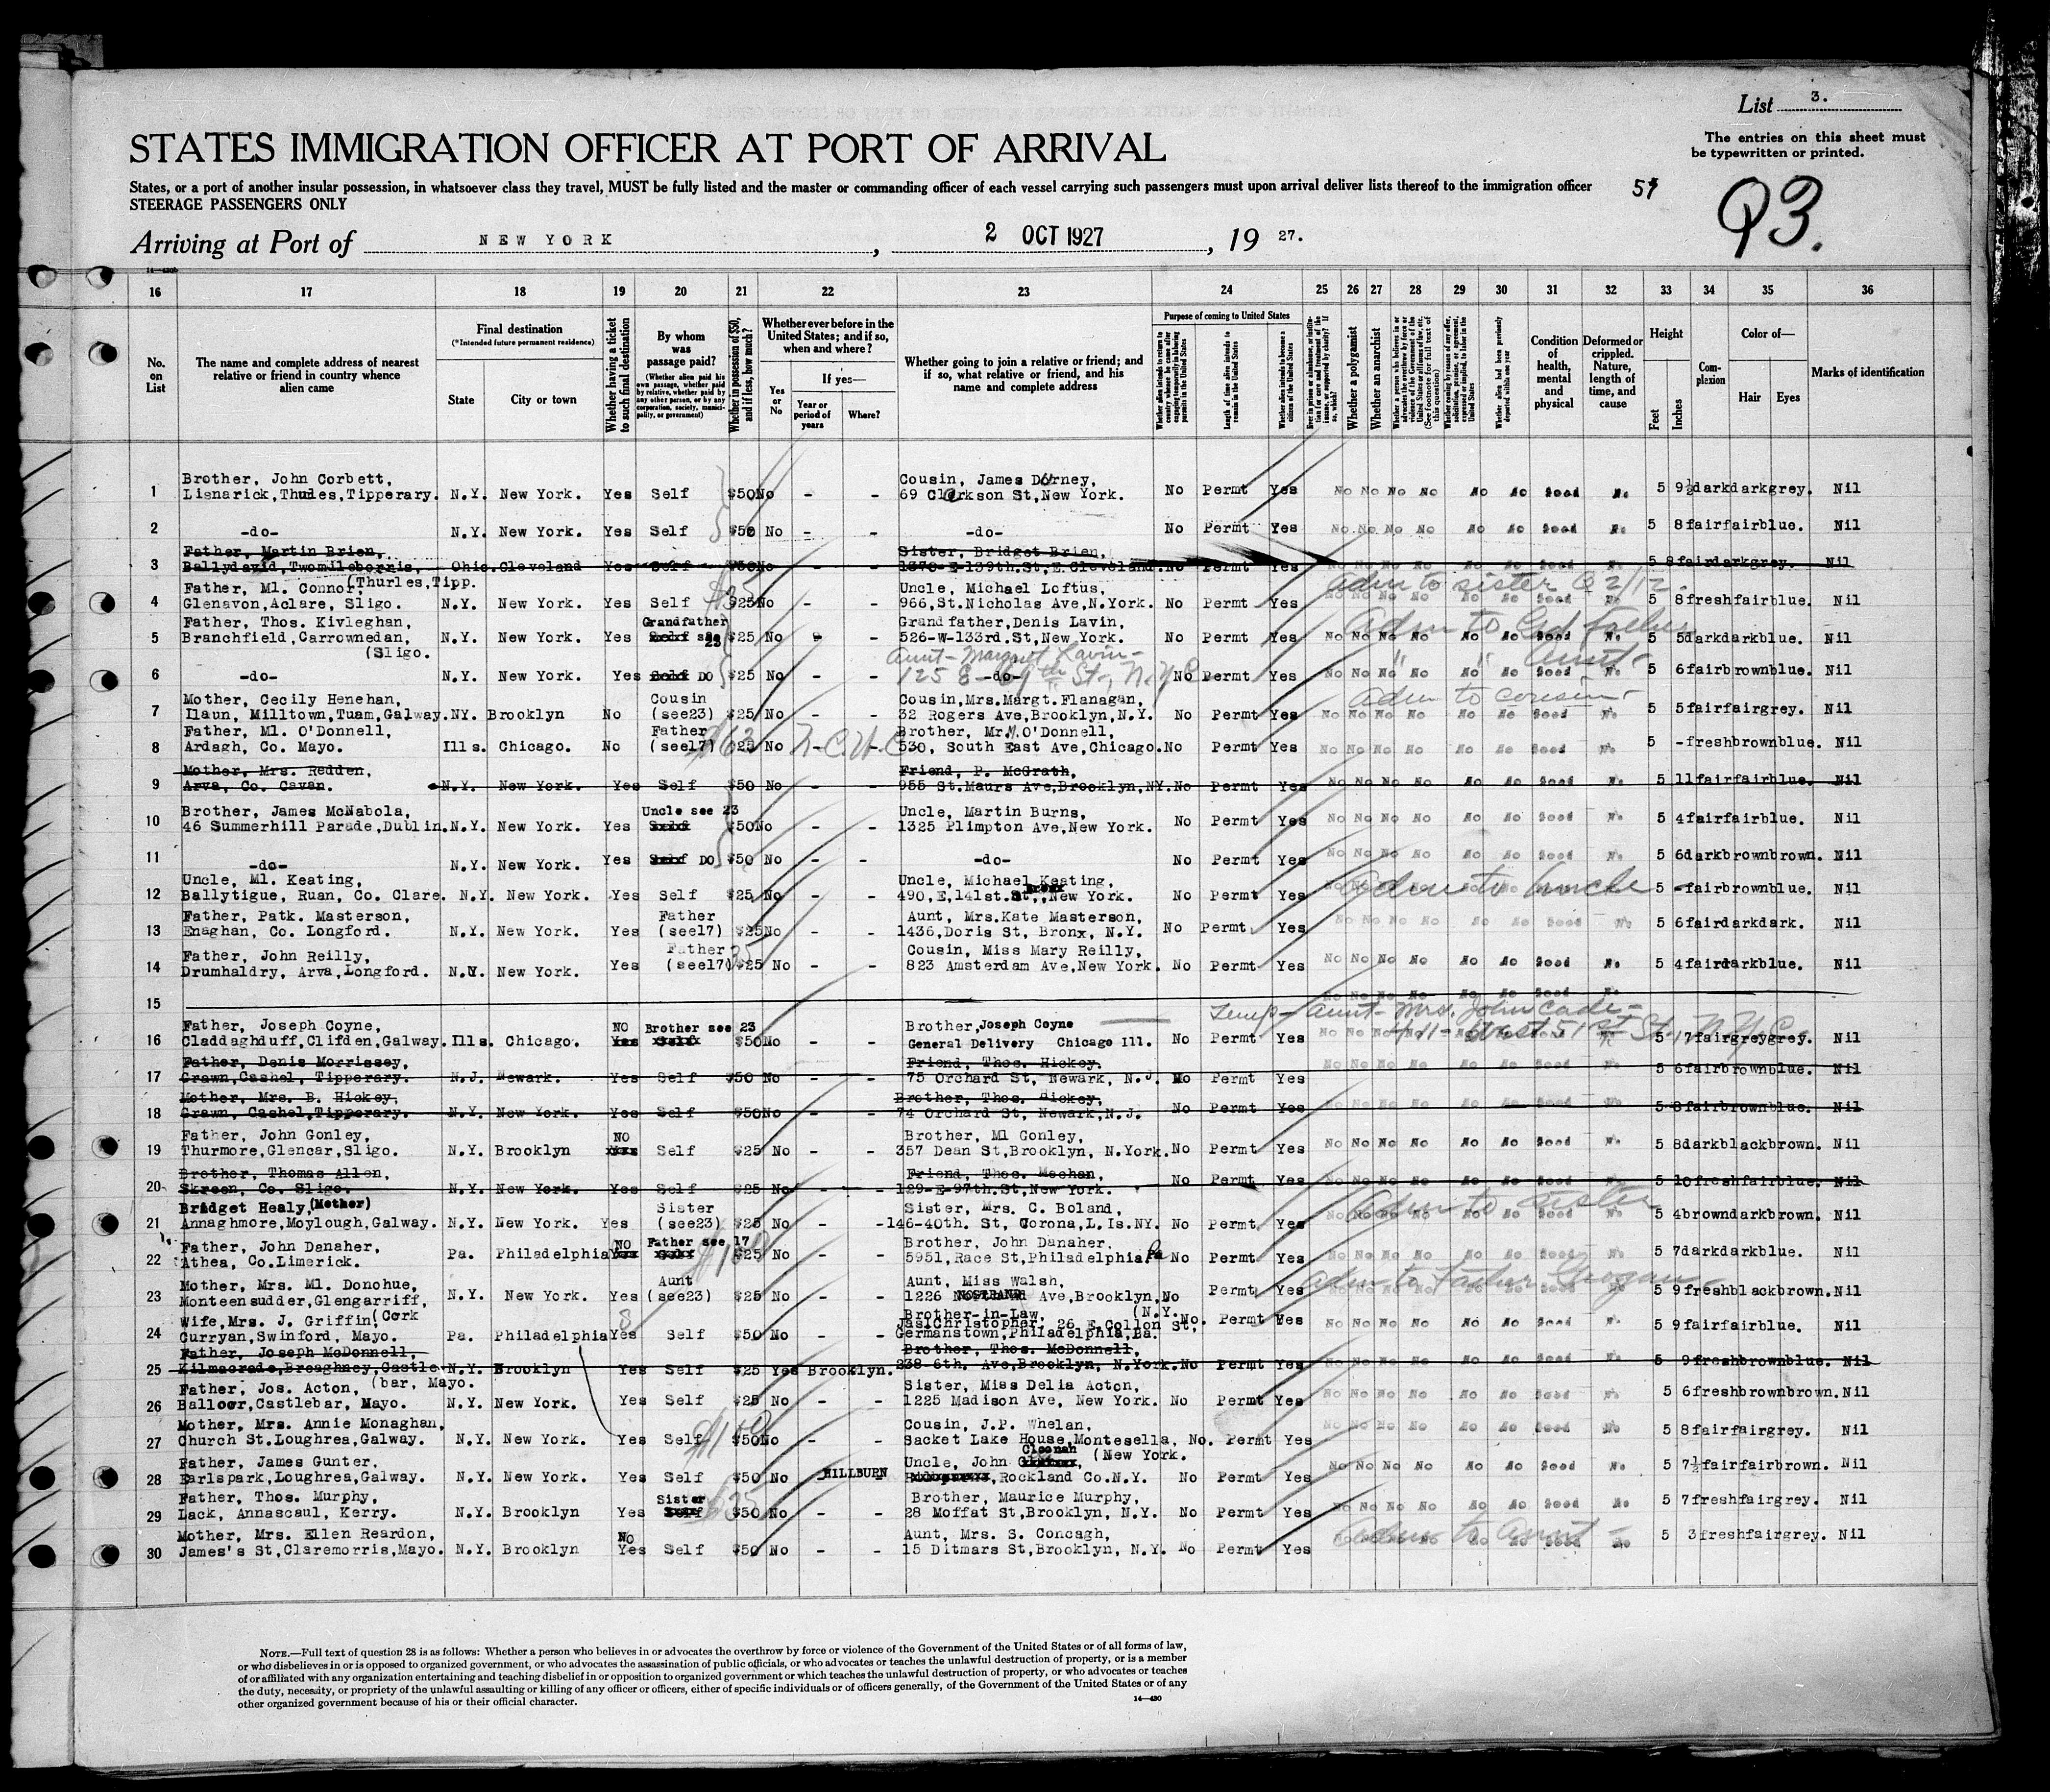 List 3.
The entries on this sheet must
be typewritten or printed.
STATES IMMIGRATION OFFICER AT PORT OF ARRIVAL
States, or a port of another insular possession, in whatsoever class they travel, MUST be fully listed and the master or commanding officer of each vessel carrying such passengers must upon arrival deliver lists thereof to the immigration officer
STEERAGE PASSENGERS ONLY
93.
Arriving at Port of NEW YORK, 2 OCT 1927, 19 27.
16 17 18 19 20 21 22 23 24 25 26 27 28 29 30 31 32 33 34 35 36
No. on List
The name and complete address of nearest relative or friend in country whence alien came
Final destination
(*Intended future permanent residence)
State City or town
Whether having a ticket to such final destination
By whom was passage paid?
(Whether alien paid his own passage, whether paid by relative, whether paid by any other person, or by any corporation, society, municipality, or government)
Whether in possession of $50, and if less, how much?
Whether ever before in the United States; and if so, when and where?
Yes or No
If yes—
Year or period of years
Where?
Whether going to join a relative or friend; and if so, what relative or friend, and his name and complete address
Purpose of coming to United States
Length of time alien intends to remain in the United States
Whether alien intends to become a citizen of the United States
Whether a polygamist
Whether an anarchist
Condition of health, mental and physical
Deformed or crippled. Nature, length of time, and cause
Height
Feet Inches
Complexion
Color of—
Hair Eyes
Marks of identification
Brother, John Corbett, Cousin, James Dorney,
1 Lisnarick,Thurles,Tipperary. N.Y. New York. Yes Self $50 No - - 69 Clarkson St,New York. No Permt Yes No No No No No No Good No 5 9½ dark dark grey. Nil
2 -do- N.Y. New York. Yes Self $50 No - - -do- No Permt Yes No No No No No No Good No 5 8 fair fair blue. Nil
Father, Martin Brien, Sister, Bridget Brien,
3 Ballydavid,Twomileborris, Ohio. Cleveland Yes Self $50 No 1370-E-139th.St,E.Cleveland. No Permt Yes 5 8 fair dark grey. Nil
(Thurles,Tipp.
adm to sister Q 2/12
Father, Ml. Connor, Uncle, Michael Loftus,
4 Glenavon,Aclare, Sligo. N.Y. New York. Yes Self $25 No - - 966,St.Nicholas Ave,N.York. No Permt Yes No No No No No No Good No 5 8 fresh fair blue. Nil
Adm to Gd father
Father, Thos. Kivleghan, Grandfather Grandfather,Denis Lavin,
5 Branchfield,Carrownedan, N.Y. New York. Yes Self see 23 $25 No - - 526-W-133rd.St,New York. No Permt Yes No No No No No No Good No 5 5 dark dark blue. Nil
(Sligo.
Aunt - Margaret Lavin -
" " Aunt -
6 -do- N.Y. New York. Yes Self DO $25 No - - 125 E-69th St., N.Y.C. -do- No Permt Yes No No No No No No Good No 5 6 fair brown blue. Nil
adm to cousin -
Mother, Cecily Henehan, Cousin Cousin,Mrs.Margt.Flanagan,
7 Ilaun, Milltown,Tuam,Galway. NY. Brooklyn No (see23) $25 No - - 32 Rogers Ave,Brooklyn,N.Y. No Permt Yes No No No No No No Good No 5 5 fair fair grey. Nil
Father, Ml. O'Donnell, Father Brother, Mr M. O'Donnell,
8 Ardagh, Co. Mayo. Ills. Chicago. No (see17) $25 No N.C.W.C. 530, South East Ave,Chicago. No Permt Yes No No No No No No Good No 5 - fresh brown blue. Nil
Mother, Mrs. Redden, Friend, P. McGrath,
9 Arva, Co. Cavan. N.Y. New York. Yes Self $50 No - - 955 St.Maurs Ave,Brooklyn,NY. No Permt Yes No No No No No No Good No 5 11 fair fair blue. Nil
Brother, James McNabola, Uncle see 23 Uncle, Martin Burns,
10 46 Summerhill Parade,Dublin. N.Y. New York. Yes Self $50 No - - 1325 Plimpton Ave,New York. No Permt Yes No No No No No No Good No 5 4 fair fair blue. Nil
11 -do- N.Y. New York. Yes Self DO $50 No - - -do- No Permt Yes No No No No No No Good No 5 6 dark brown brown. Nil
adm to Uncle
Uncle, Ml. Keating, Uncle, Michael Keating,
12 Ballytigue, Ruan, Co. Clare. N.Y. New York. Yes Self $25 No - - 490,E,141st.St, Bronx, New York. No Permt Yes 5 - fair brown blue. Nil
Father, Patk. Masterson, Father Aunt, Mrs.Kate Masterson,
13 Enaghan, Co. Longford. N.Y. New York. Yes (see17) $25 No - - 1436,Doris St, Bronx, N.Y. No Permt. Yes No No No No No No Good No 5 6 fair dark dark. Nil
Father, John Reilly, Father Cousin, Miss Mary Reilly,
14 Drumhaldry, Arva,Longford. N.Y. New York. Yes (see17) $25 No - - 823 Amsterdam Ave,New York. No Permt Yes No No No No No No Good No 5 4 fair dark blue. Nil
15 No No No No No No Good No
Temp - Aunt - Mrs. John Cade -
411 - West 51st St., N.Y.C.
Father, Joseph Coyne, NO Brother see 23 Brother, Joseph Coyne
16 Claddaghduff,Clifden,Galway. Ills. Chicago. Yes Self $50 No - - General Delivery Chicago Ill. No Permt Yes 5 7 fair grey grey. Nil
Father, Denis Morrissey, Friend, Thos. Hickey.
17 Grawn,Cashel, Tipperary. N.J. Newark. Yes Self $50 No - - 75 Orchard St, Newark, N.J. No Permt Yes No No No No No No Good No 5 6 fair brown blue. Nil
Mother, Mrs. B. Hickey, Brother, Thos. Hickey,
18 Grawn, Cashel,Tipperary. N.Y. New York. Yes Self $50 No - - 74 Orchard St, Newark,N.J. No Permt Yes No No No No No No Good No 5 8 fair brown blue. Nil
Father, John Gonley, NO Brother, Ml Gonley,
19 Thurmore,Glencar,Sligo. N.Y. Brooklyn Yes Self $25 No - - 357 Dean St,Brooklyn, N.York. No Permt Yes No No No No No No Good No 5 8 dark black brown. Nil
Brother, Thomas Allen, Friend, Thos. Meehan,
20 Skreen, Co. Sligo. N.Y. New York. Yes Self $25 No - - 129-E-97th.St,New York. No Permt Yes No No No No No No Good No 5 10 fresh fair blue. Nil
adm to sister
Bridget Healy,(Mother) Sister Sister, Mrs. C. Boland,
21 Annaghmore,Moylough,Galway. N.Y. New York. Yes (see23) $25 No - - 146-40th. St, Corona,L.Is.NY. No Permt. Yes No No No No No No Good No 5 4 brown dark brown. Nil
Father, John Danaher, NO Father see 17 Brother, John Danaher,
22 Athea, Co.Limerick. Pa. Philadelphia Yes Self $25 No - - 5951,Race St,Philadelphia, Pa No Permt Yes No No No No No No Good No 5 7 dark dark blue. Nil
adm to Father Grogan -
Mother, Mrs. Ml. Donohue, Aunt Aunt, Miss Walsh,
23 Monteensudder,Glengarriff, N.Y. New York. Yes (see23) $25 No - - 1226 NOSTRAND Ave,Brooklyn, No Permt Yes 5 9 fresh black brown. Nil
(Cork (N.Y.
Wife,Mrs. J. Griffin, Brother-in-Law,
Jas.Christopher, 26 E.Collon St,
24 Curryan,Swinford, Mayo. Pa. Philadelphia Yes Self $50 No - - Germanstown,Philadelphia,Pa. No. Permt Yes No No No No No No Good No 5 9 fair fair blue. Nil
Father, Joseph McDonnell, Brother, Thos. McDonnell,
25 Kilmacrade,Breaghney,Castle N.Y. Brooklyn Yes Self $25 Yes Brooklyn. 238-6th. Ave,Brooklyn, N.York. No Permt Yes No No No No No No Good No 5 9 fresh brown blue. Nil
(bar, Mayo.
Father, Jos. Acton, Sister, Miss Delia Acton,
26 Balloor,Castlebar, Mayo. N.Y. New York. Yes Self $25 No - - 1225 Madison Ave, New York. No Permt Yes No No No No No No Good No 5 6 fresh brown brown. Nil
Mother, Mrs. Annie Monaghan, Cousin, J.P. Whelan,
27 Church St.Loughrea,Galway. N.Y. New York. Yes Self $50 No - - Sacket Lake House,Montesella, No. Permt Yes No No No No No No Good No 5 8 fair fair grey. Nil
(New York.
Father, James Gunter, Uncle, John Cloonah
28 Earlspark,Loughrea,Galway. N.Y. New York. Yes Self $50 No - - HILLBURN ,Rockland Co.N.Y. No Permt Yes No No No No No No Good No 5 7½ fair fair brown. Nil
Father, Thos. Murphy, Sister Brother, Maurice Murphy,
29 Lack, Annascaul, Kerry. N.Y. Brooklyn Yes Self $50 No - - 28 Moffat St,Brooklyn, N.Y. No Permt Yes No No No No No No Good No 5 7 fresh fair grey. Nil
adm to Aunt -
Mother, Mrs. Ellen Reardon, No Aunt, Mrs. S. Concagh,
30 James's St,Claremorris,Mayo. N.Y. Brooklyn Yes Self $50 No - - 15 Ditmars St,Brooklyn, N.Y. No Permt Yes 5 3 fresh fair grey. Nil
NOTE.—Full text of question 28 is as follows: Whether a person who believes in or advocates the overthrow by force or violence of the Government of the United States or of all forms of law,
or who disbelieves in or is opposed to organized government, or who advocates the assassination of public officials, or who advocates or teaches the unlawful destruction of property, or is a member
of or affiliated with any organization entertaining and teaching disbelief in or opposition to organized government or which teaches the unlawful destruction of property, or who advocates or teaches
the duty, necessity, or propriety of the unlawful assaulting or killing of any officer or officers, either of specific individuals or of officers generally, of the Government of the United States or of any
other organized government because of his or their official character.
14—430